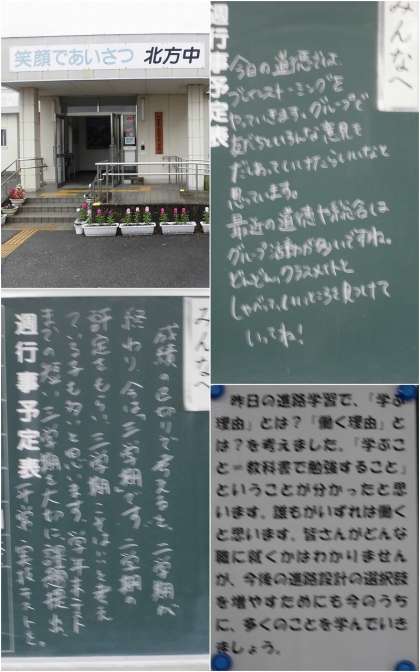 笑顔であいさつ 北方中
みんなへ
週行事予定表
今日の道徳では
ブレインストーミングを
やっていきます。グループで
自由にいろんな意見を
だしあっていけたらいいなと
思っています。
最近の道徳や総合は
グループ活動が多いですね。
どんどん、クラスメイトと
しゃべって、いいところを見つけて
いってね！
みんなへ
成績の区切りで考えると、二学期が
終わり、今は、三学期です。二学期の
評定をもらい、三学期こそはと考え
ている子も多いと思います。学年末テスト
までの短い三学期を大切に
週行事予定表
昨日の進路学習で、「学ぶ
理由」とは？「働く理由」と
は？を考えました。「学ぶこ
と＝教科書で勉強すること」
ということが分かったと思
います。誰もがいずれは働く
と思います。皆さんがどんな
職に就くかはわかりません
が、今後の進路設計の選択肢
を増やすためにも今のうち
に、多くのことを学んでいき
ましょう。